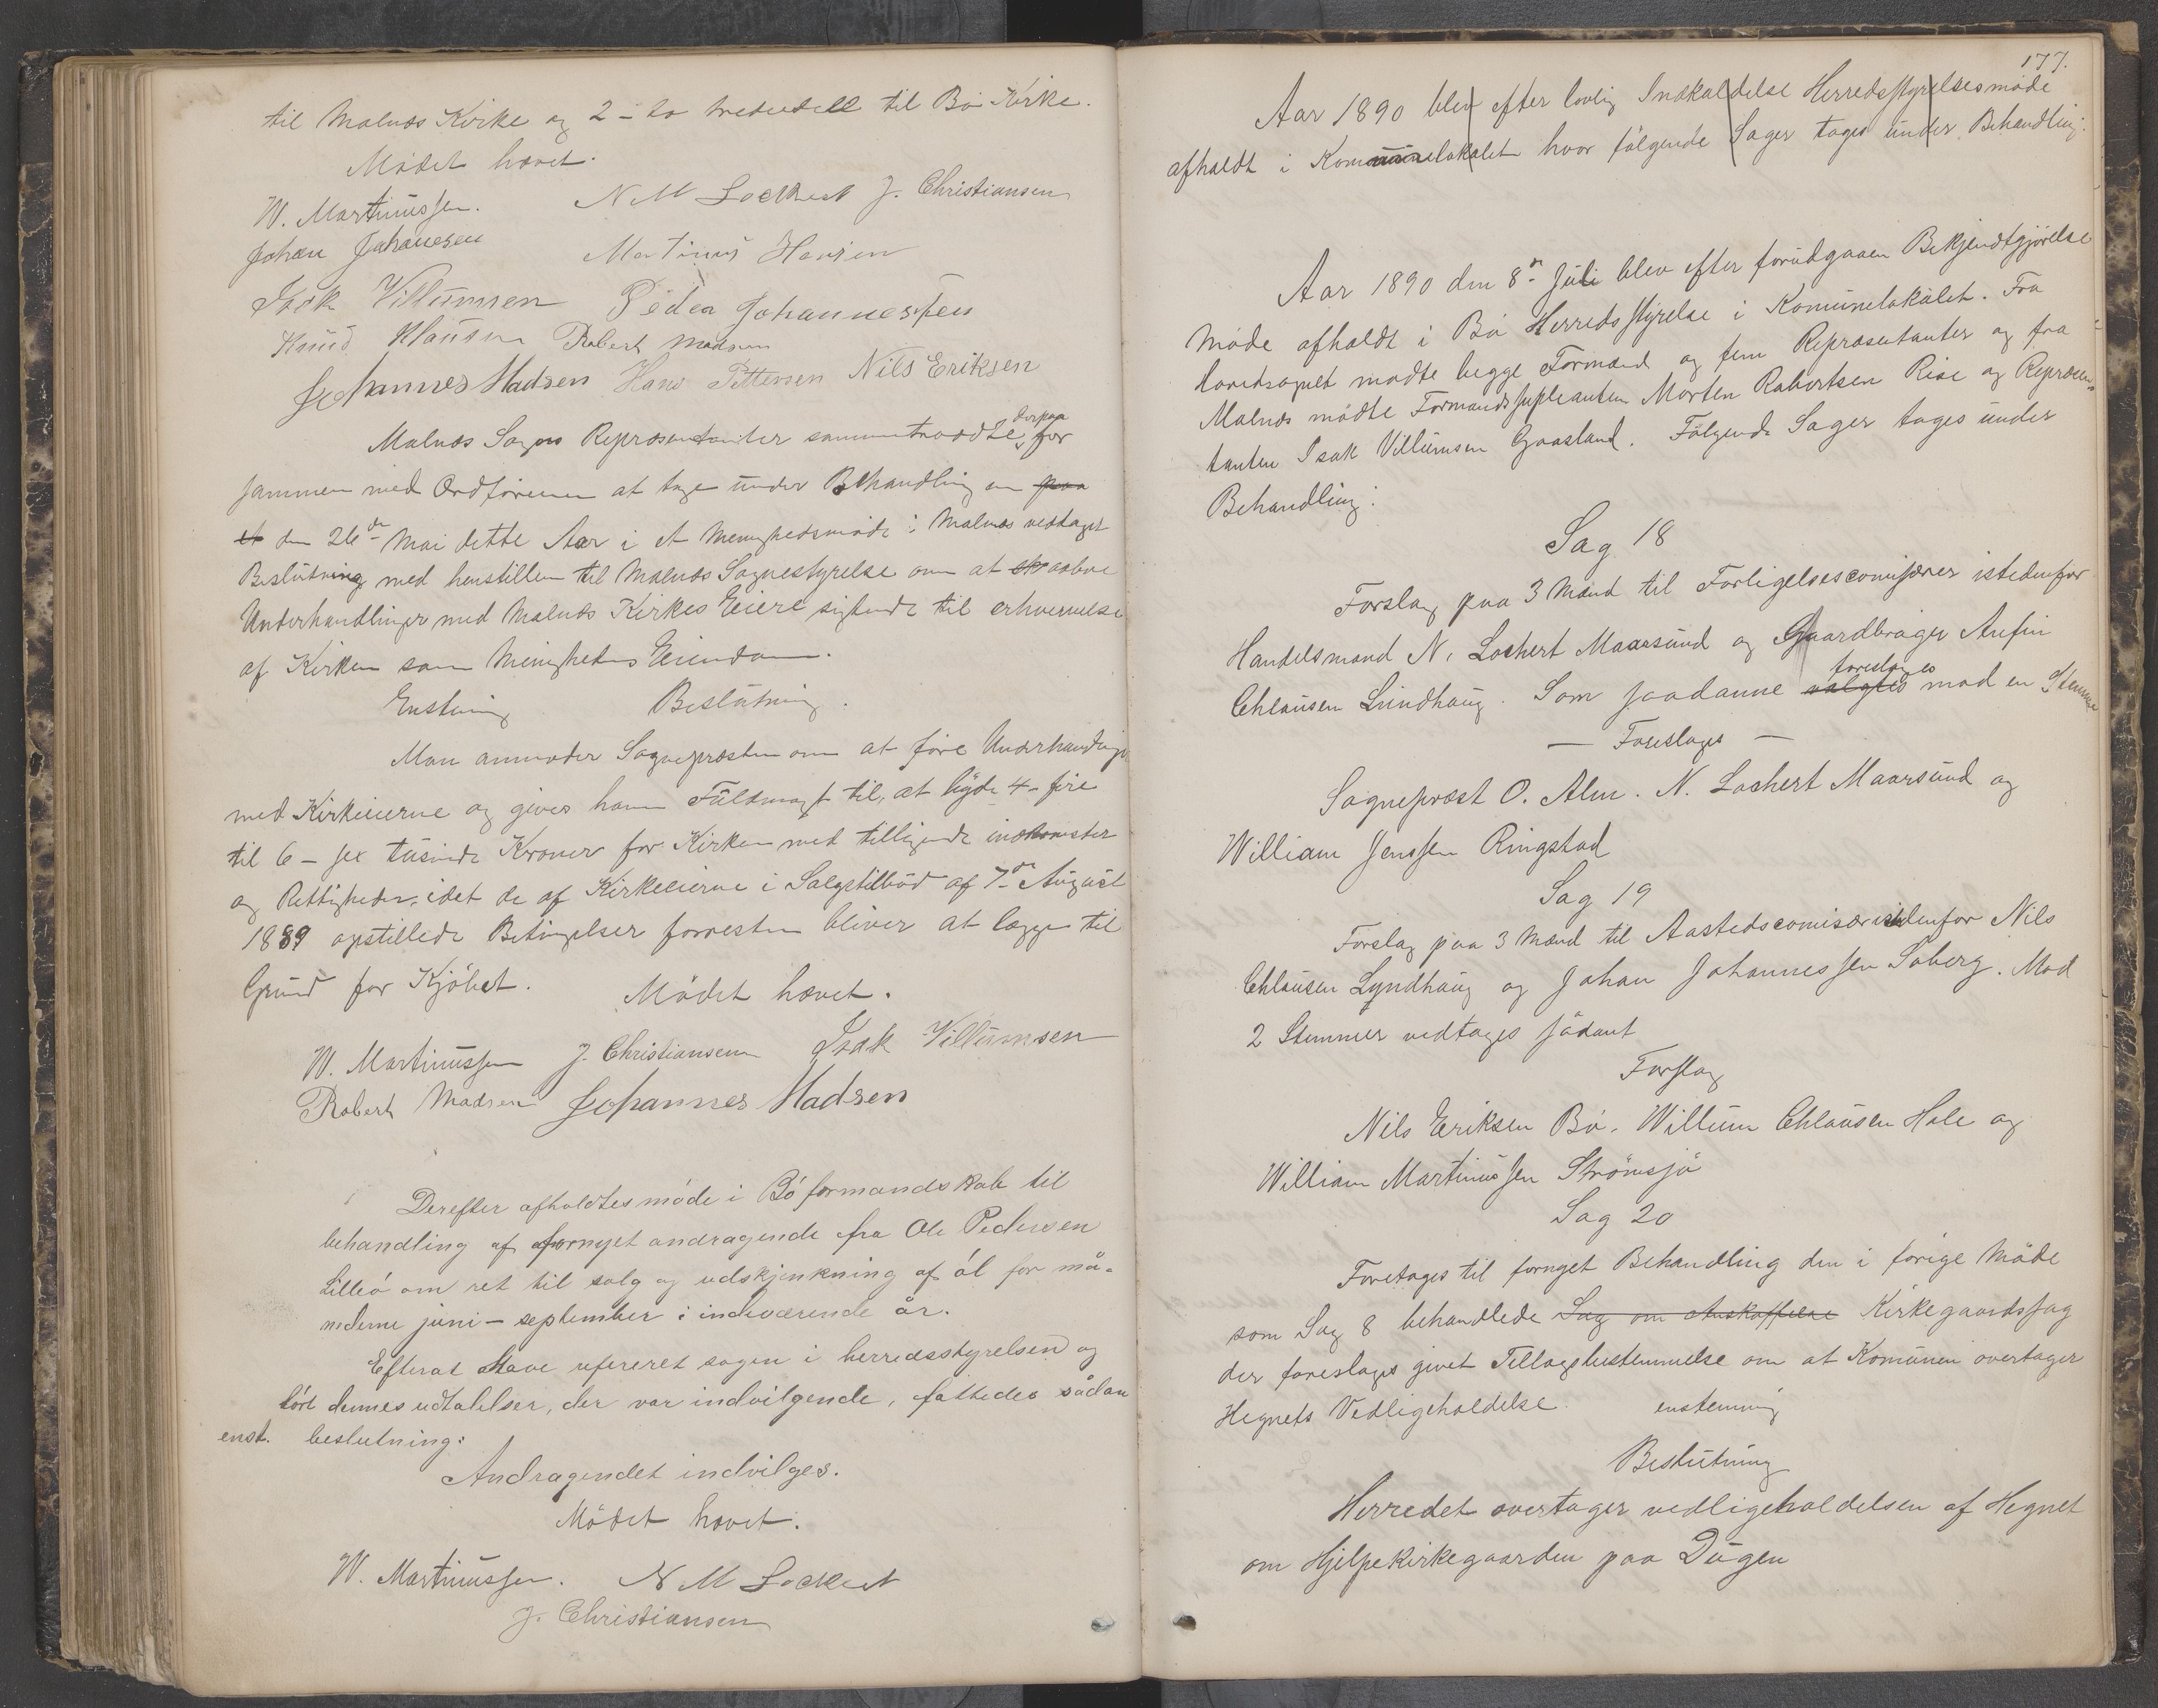 til Malnæs Kirke og 2 - to trededell til Bø Kirke.
Mødet hævet.
W. Martinussen. N M Lockert J. Christiansen
Johan Johanesen Martinus Hansen
Isak Villumsen Peder Johannessen
Knud Klausen Robert Madsen
Johannes Madsen Hans Pettersen Nils Eriksen
Malnæs Sogns Repræsentanter sammentraadte derpaa for
sammen med Ordføreren at tage under Behandling en paa
et den 26de Mai dette Aar i et Menighedsmøde i Malnæs vedtaget
Beslutning med henstillen til Malnæs Sognestyrelse om at aabne
Underhandlinger med Malnæs Kirkes Eiere sigtende til erhvervelse
af Kirken som Menighedens Eiendom.
Enstemig Beslutning.
Man anmoder Sognepræsten om at føre Underhandlinger
med Kirkeeierne og gives ham Fuldmagt til, at byde 4 - fire
til 6 - sex tusinde Kroner for Kirken med tilliggende indkomster
og Rettigheder, idet de af Kirkeeierne i Salgstilbud af 7de August
1889 opstillede Betingelser forresten bliver at lægge til
Grund for Kjøbet. Mødet hævet.
W. Martinussen J. Christiansen Isak Villumsen
Robert Madsen Johannes Madsen
Derefter afholdtes møde i Bø formandskab til
behandling af fornyet andragende fra Ole Pedersen
Lilleø om ret til salg og udskjenkning af øl for må-
nederne juni - september i indeværende år.
Efterat Have refereret sagen i herredsstyrelsen og
hørt dennes udtalelser, der var indvilgende, fattedes sådan
enst. beslutning:
Andragendet indvilges.
Mødet hævet.
W. Martinussen. N M Lockert
J. Christiansen
177.
Aar 1890 blev efter lovlig Indkaldelse Herredsstyrelsesmøde
afholdt i Kommunelokalet hvor følgende Sager toges under Behandling.
Aar 1890 den 8de Juli blev efter forudgaaen Bekjendtgjørelse
Møde afholdt i Bø Herredsstyrelse i Komunelokalet. Fra
Hovedsognet mødte begge Formænd og fem Repræsentanter og fra
Malnæs mødte Formandssupleanten Morten Robertsen Rise og Repræsen-
tanten Isak Villumsen Gaasland. Følgende Sager toges under
Behandling:
Sag 18
Forslag paa 3 Mænd til Forligelsescomisærer istedenfor
Handelsmand N. Lockert Maarsund og Gaardbruger Anfin
Chlausen Lundhaug. Som saadanne valgtes foreslages mod en Stemme
- Foreslages -
Sognepræst O. Alm. N. Lockert Maarsund og
William Jenssen Ringstad
Sag 19
Forslag paa 3 Mænd til Aastedscomisær istedenfor Nils
Chlausen Lyndhaug og Johan Johannessen Soberg. Mod
2 Stemmer vedtages sådant
Forslag
Nils Eriksen Bø, Willum Chlausen Hole og
William Martinussen Strømsjø
Sag 20
Foretages til fornyet Behandling den i forige Møde
som Sag 8 behandlede Sag om Anskaffelse Kirkegaardssag
der foreslages givet Tillægsbestemmelse om at Komunen overtager
Hegnets Vedligeholdelse. enstemmig
Beslutning
Herredet overtager vedligeholdelsen af Hegnet
om Hjelpekirkegaarden paa Dugen